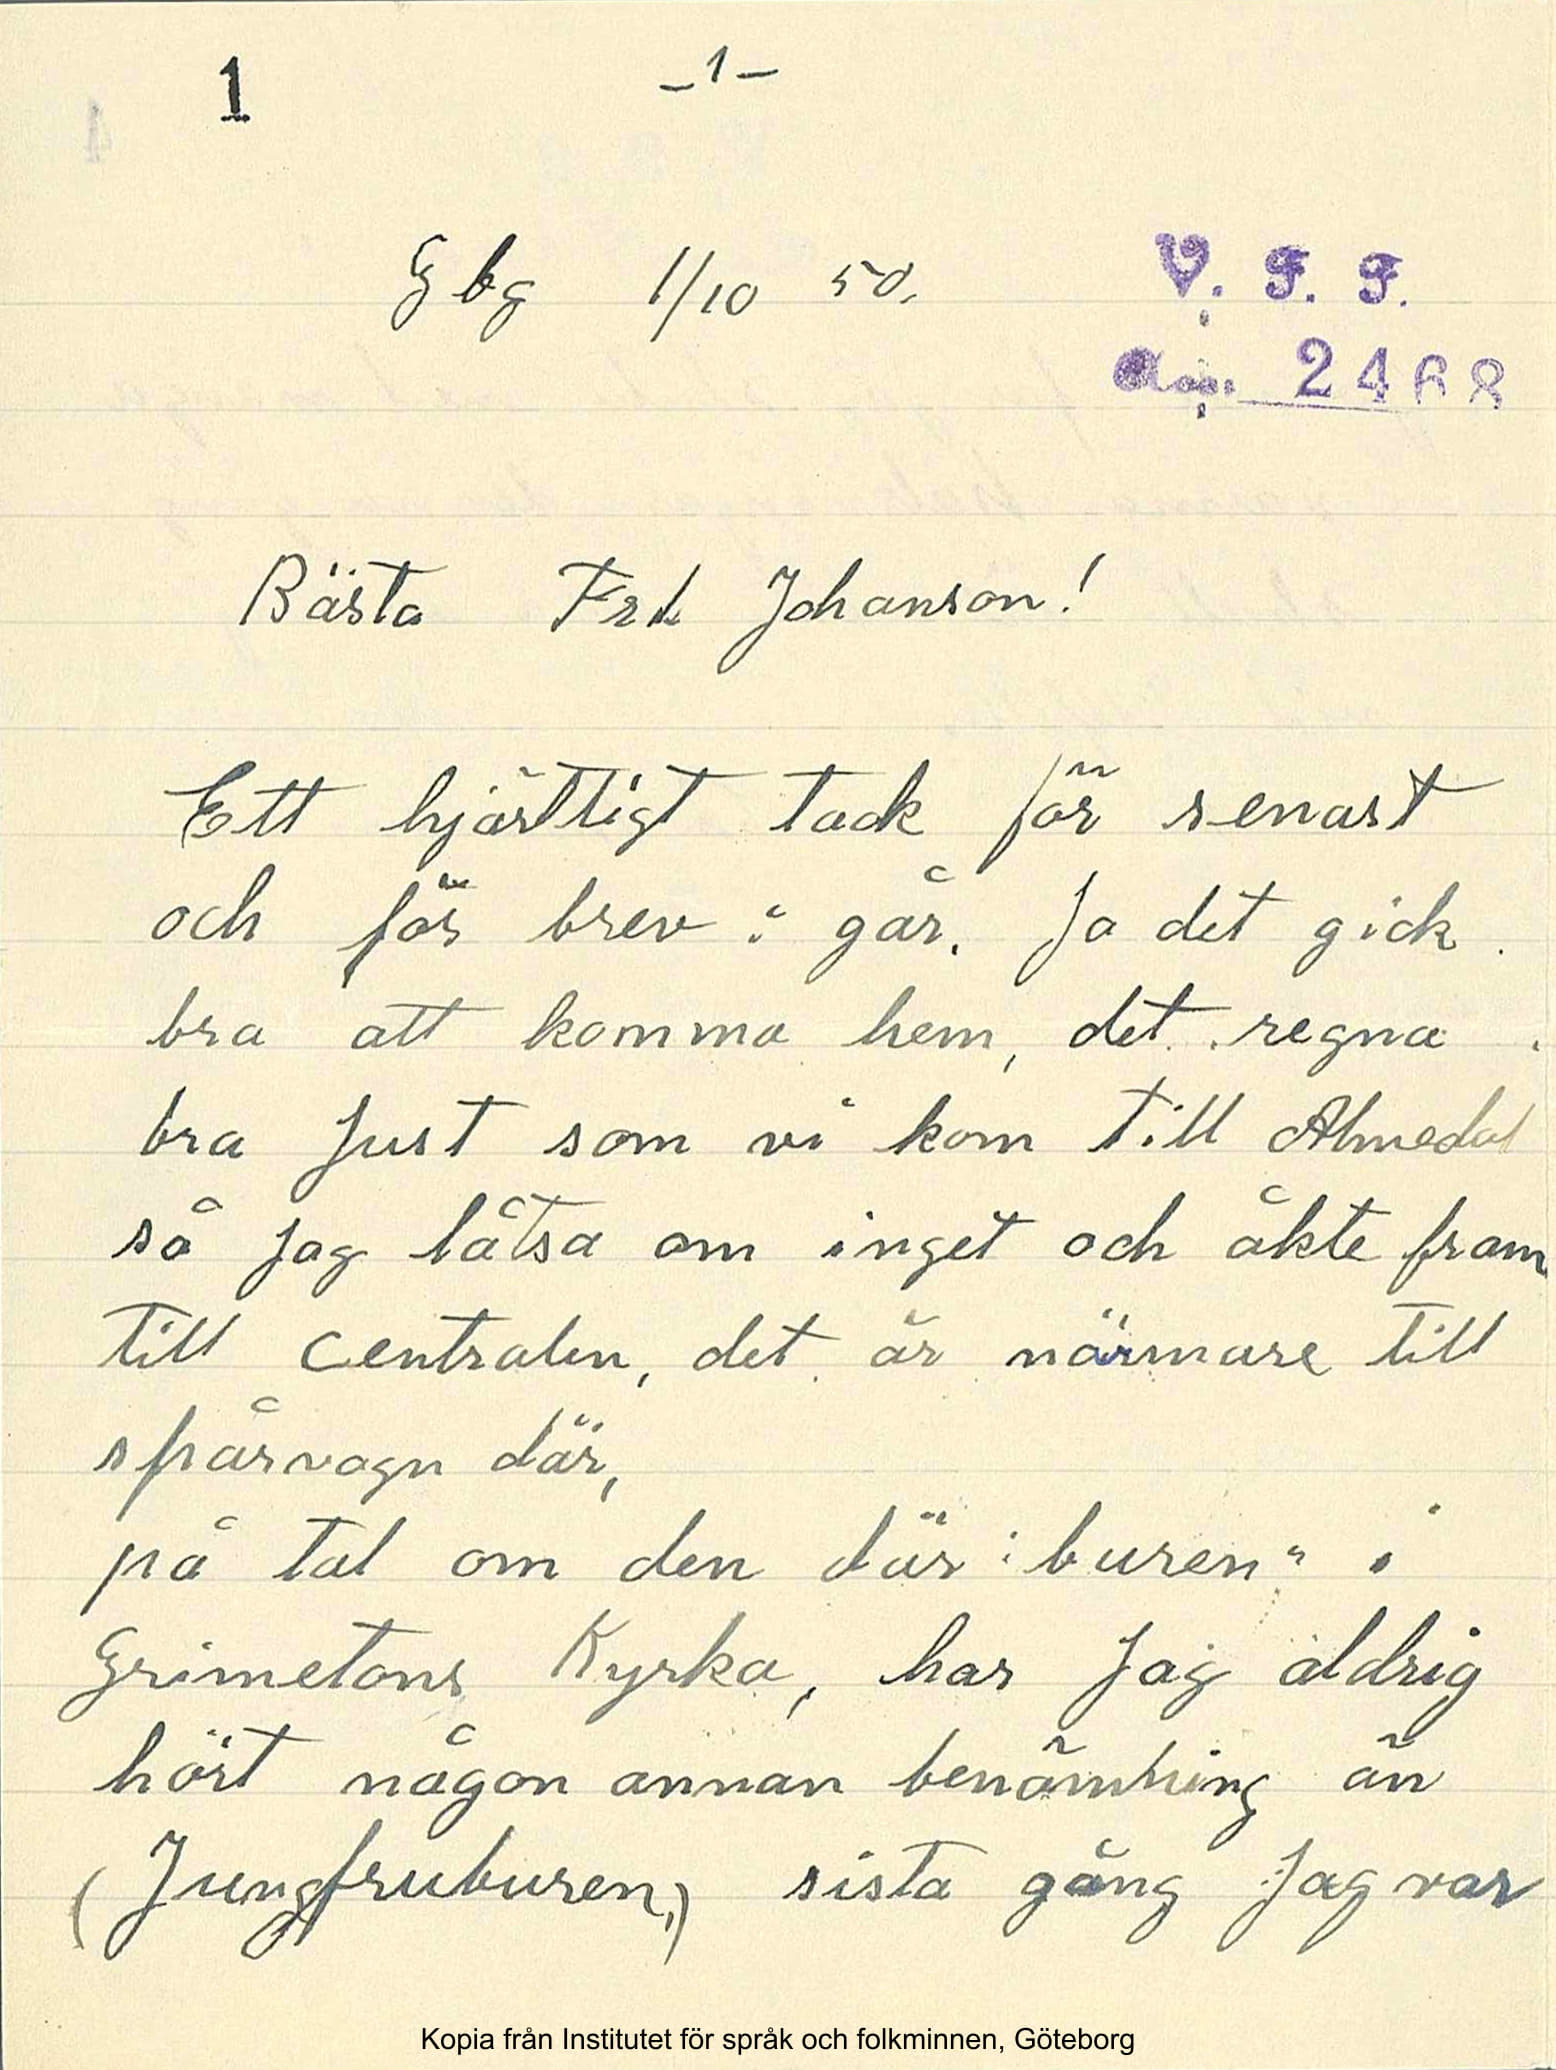 1
-1-
Gbg 1/10 50.
V. F. F.
Acc. 2468
Bästa Frk Johanson!
Ett hjärtligt tack för senast
och för brev i går. Ja det gick
bra att komma hem, det regna
bra Just som vi kom till Almedal
så Jag låtsa om inget och åkte fram
till Centralen, det är närmare till
spårvagn där,
på tal om den där "buren" i
Grimetons Kyrka, har Jag aldrig
hört någon annan benämning än
(Jungfruburen,) sista gång Jag var
Kopia från Institutet för språk och folkminnen, Göteborg